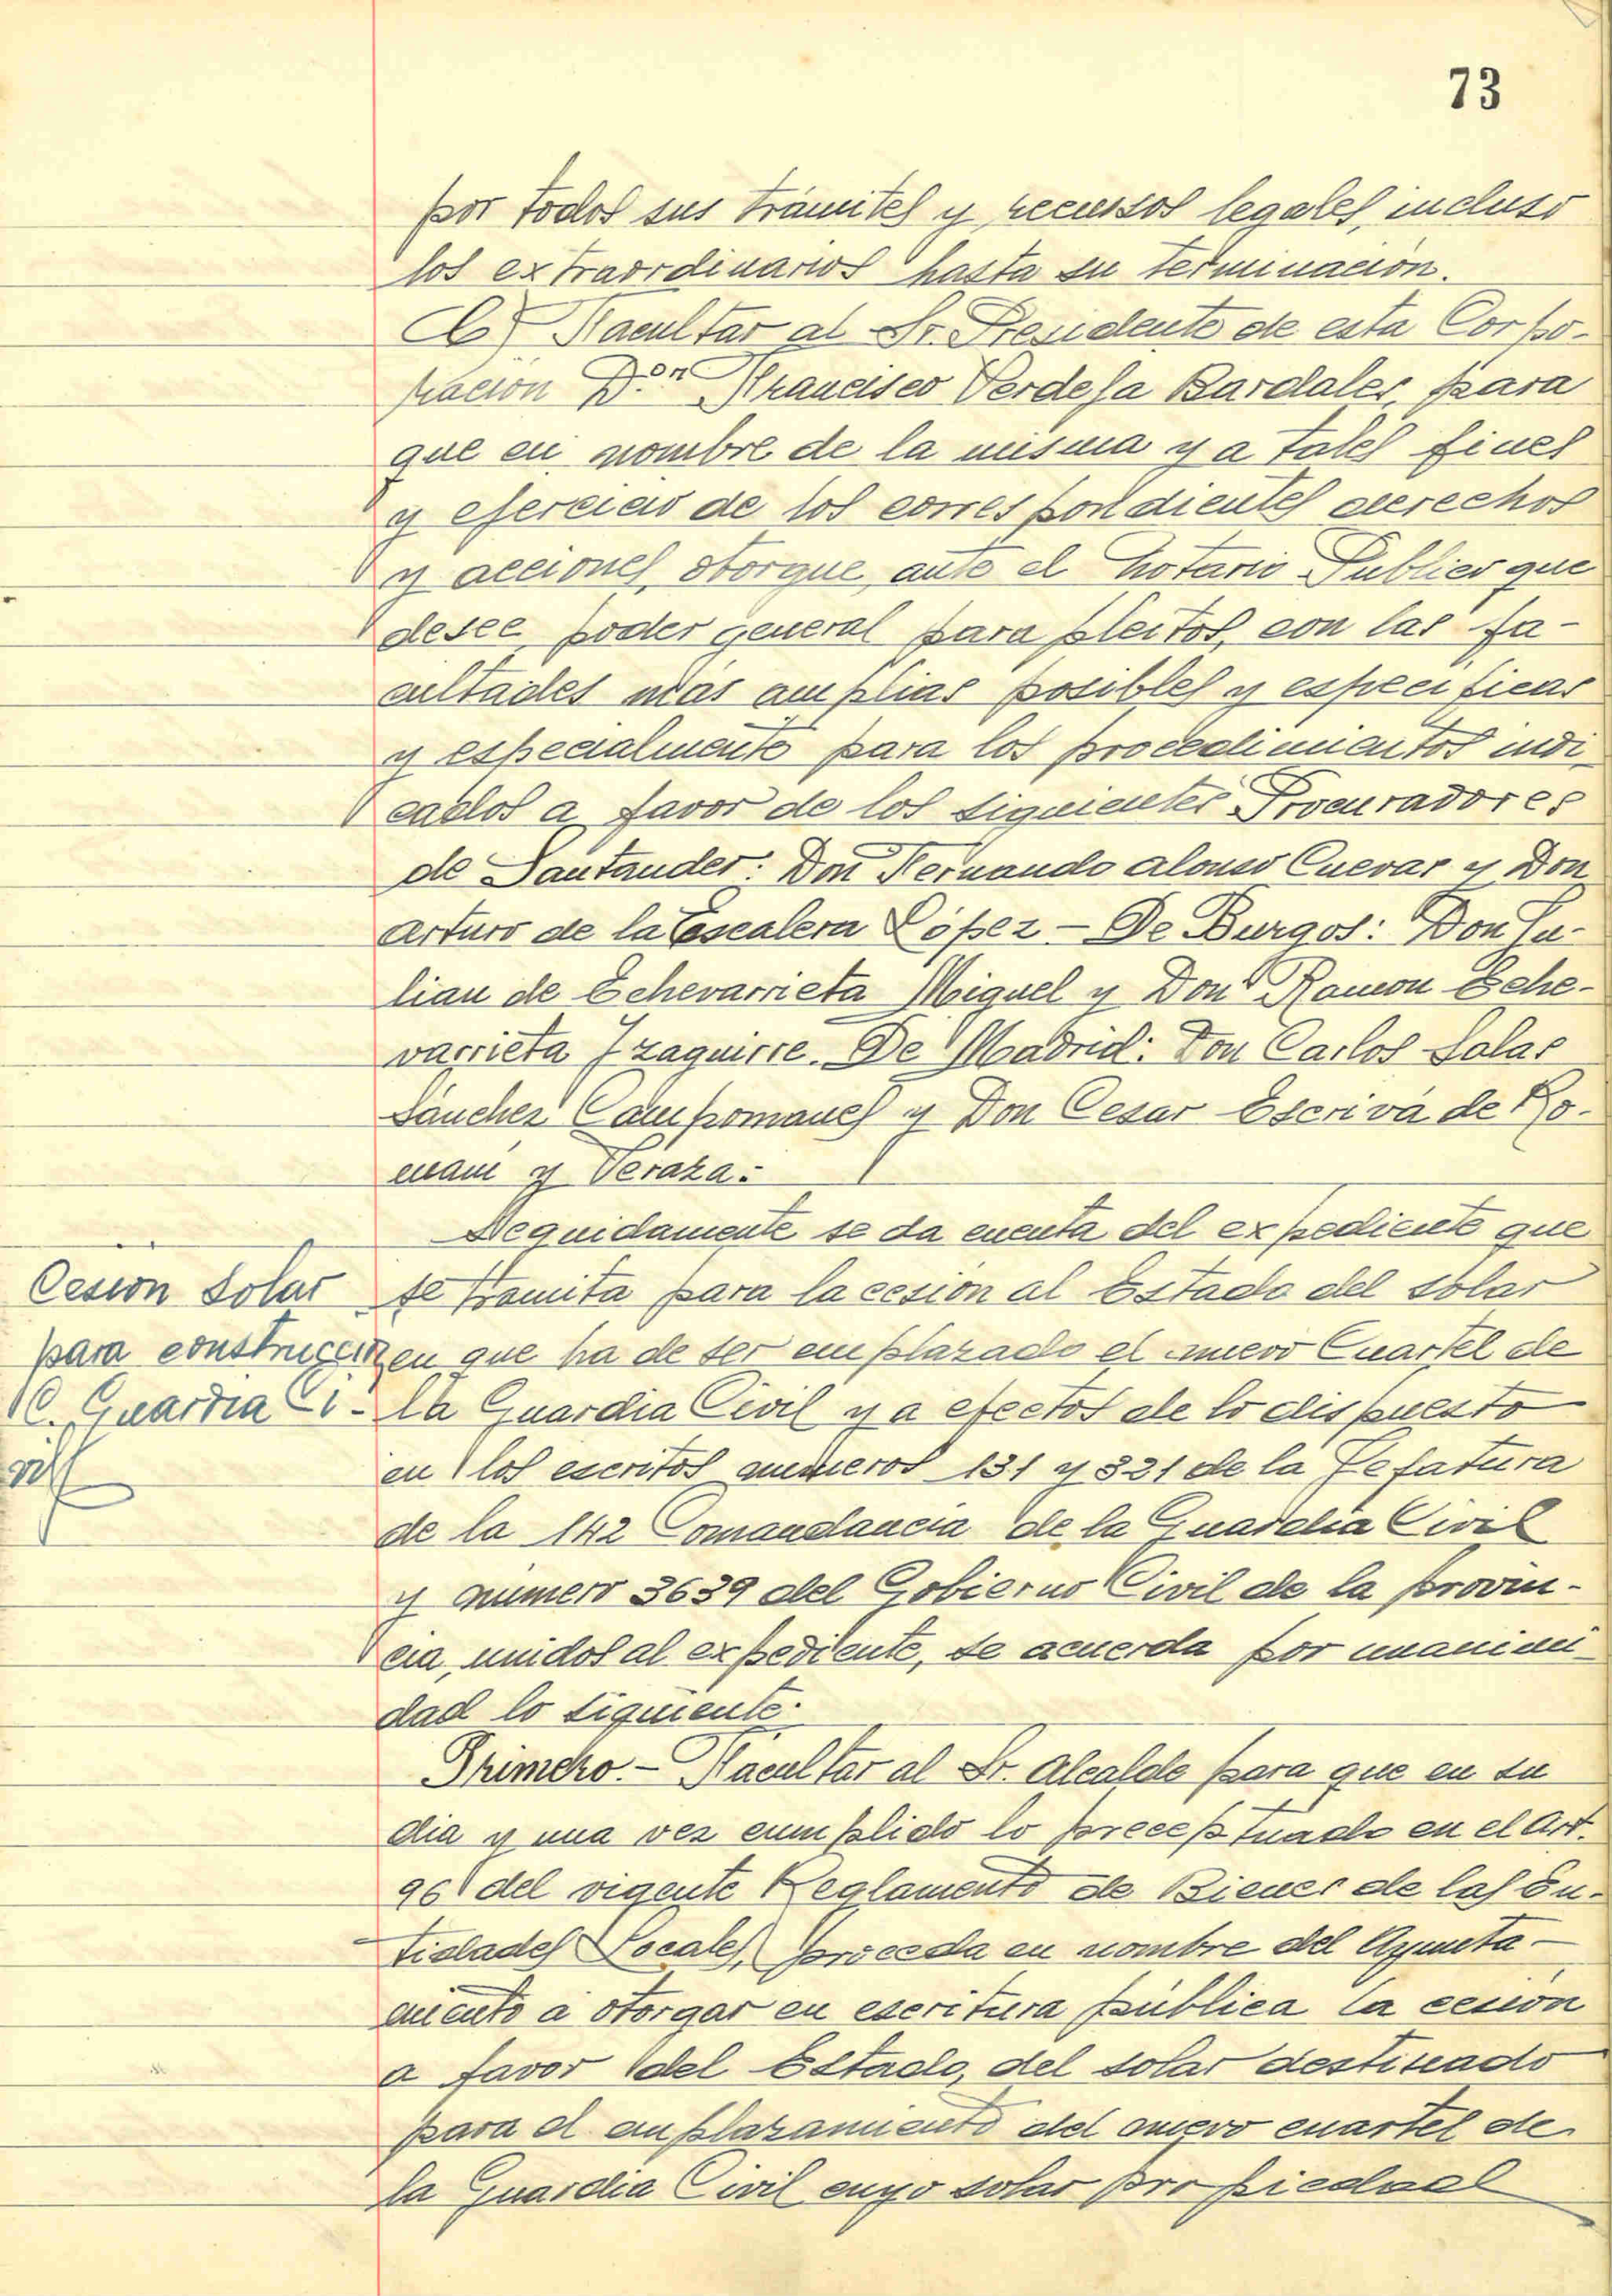 73
por todos sus trámites y recursos legales, incluso
los extraordinarios hasta su terminación.
b) Facultar al Sr. Presidente de esta Corpo-
ración D.on Francisco Verdeja Bardales, para
que en nombre de la misma y a tales fines
y ejercicio de los correspondientes derechos
y acciones, otorgue, ante el Notario Publico que
desee, poder general para pleitos, con las fa-
cultades más amplias posibles y especificas
y especialmente para los procedimientos indi-
cados a favor de los siguientes Procuradores
de Santander: Don Fernando Alonso Cuevas y Don
Arturo de la Escalera López - De Burgos: Don Ju-
lian de Echevarrieta Miguel y Don Ramon Eche-
varrieta Izaguirre. De Madrid: Don Carlos Salas
Sánchez Campomanes y Don Cesar Escrivá de Ro-
maní y Veraza.-
Seguidamente se da cuenta del expediente que
Cesión Solar
para construccion
C. Guardia Ci-
vil
se tramita para la cesión al Estado del solar
en que ha de ser emplazado el nuevo Cuartel de
la Guardia Civil y a efectos de lo dispuesto
en los escritos numeros 131 y 321 de la Jefatura
de la 142 Comandancia de la Guardia Civil
y número 3639 del Gobierno Civil de la provin-
cia, unidos al expediente, se acuerda por unanimi-
dad lo siguiente.
Primero.- Facultar al Sr. Alcalde para que en su
dia y una vez cumplido lo preceptuado en el Art.
96 del vigente Reglamento de Bienes de las En-
tidades Locales, proceda en nombre del Ayunta-
miento a otorgar en escritura pública la cesión
a favor del Estado, del solar destinado
para el emplazamiento del nuevo cuartel de
la Guardia Civil cuyo solar propiedad